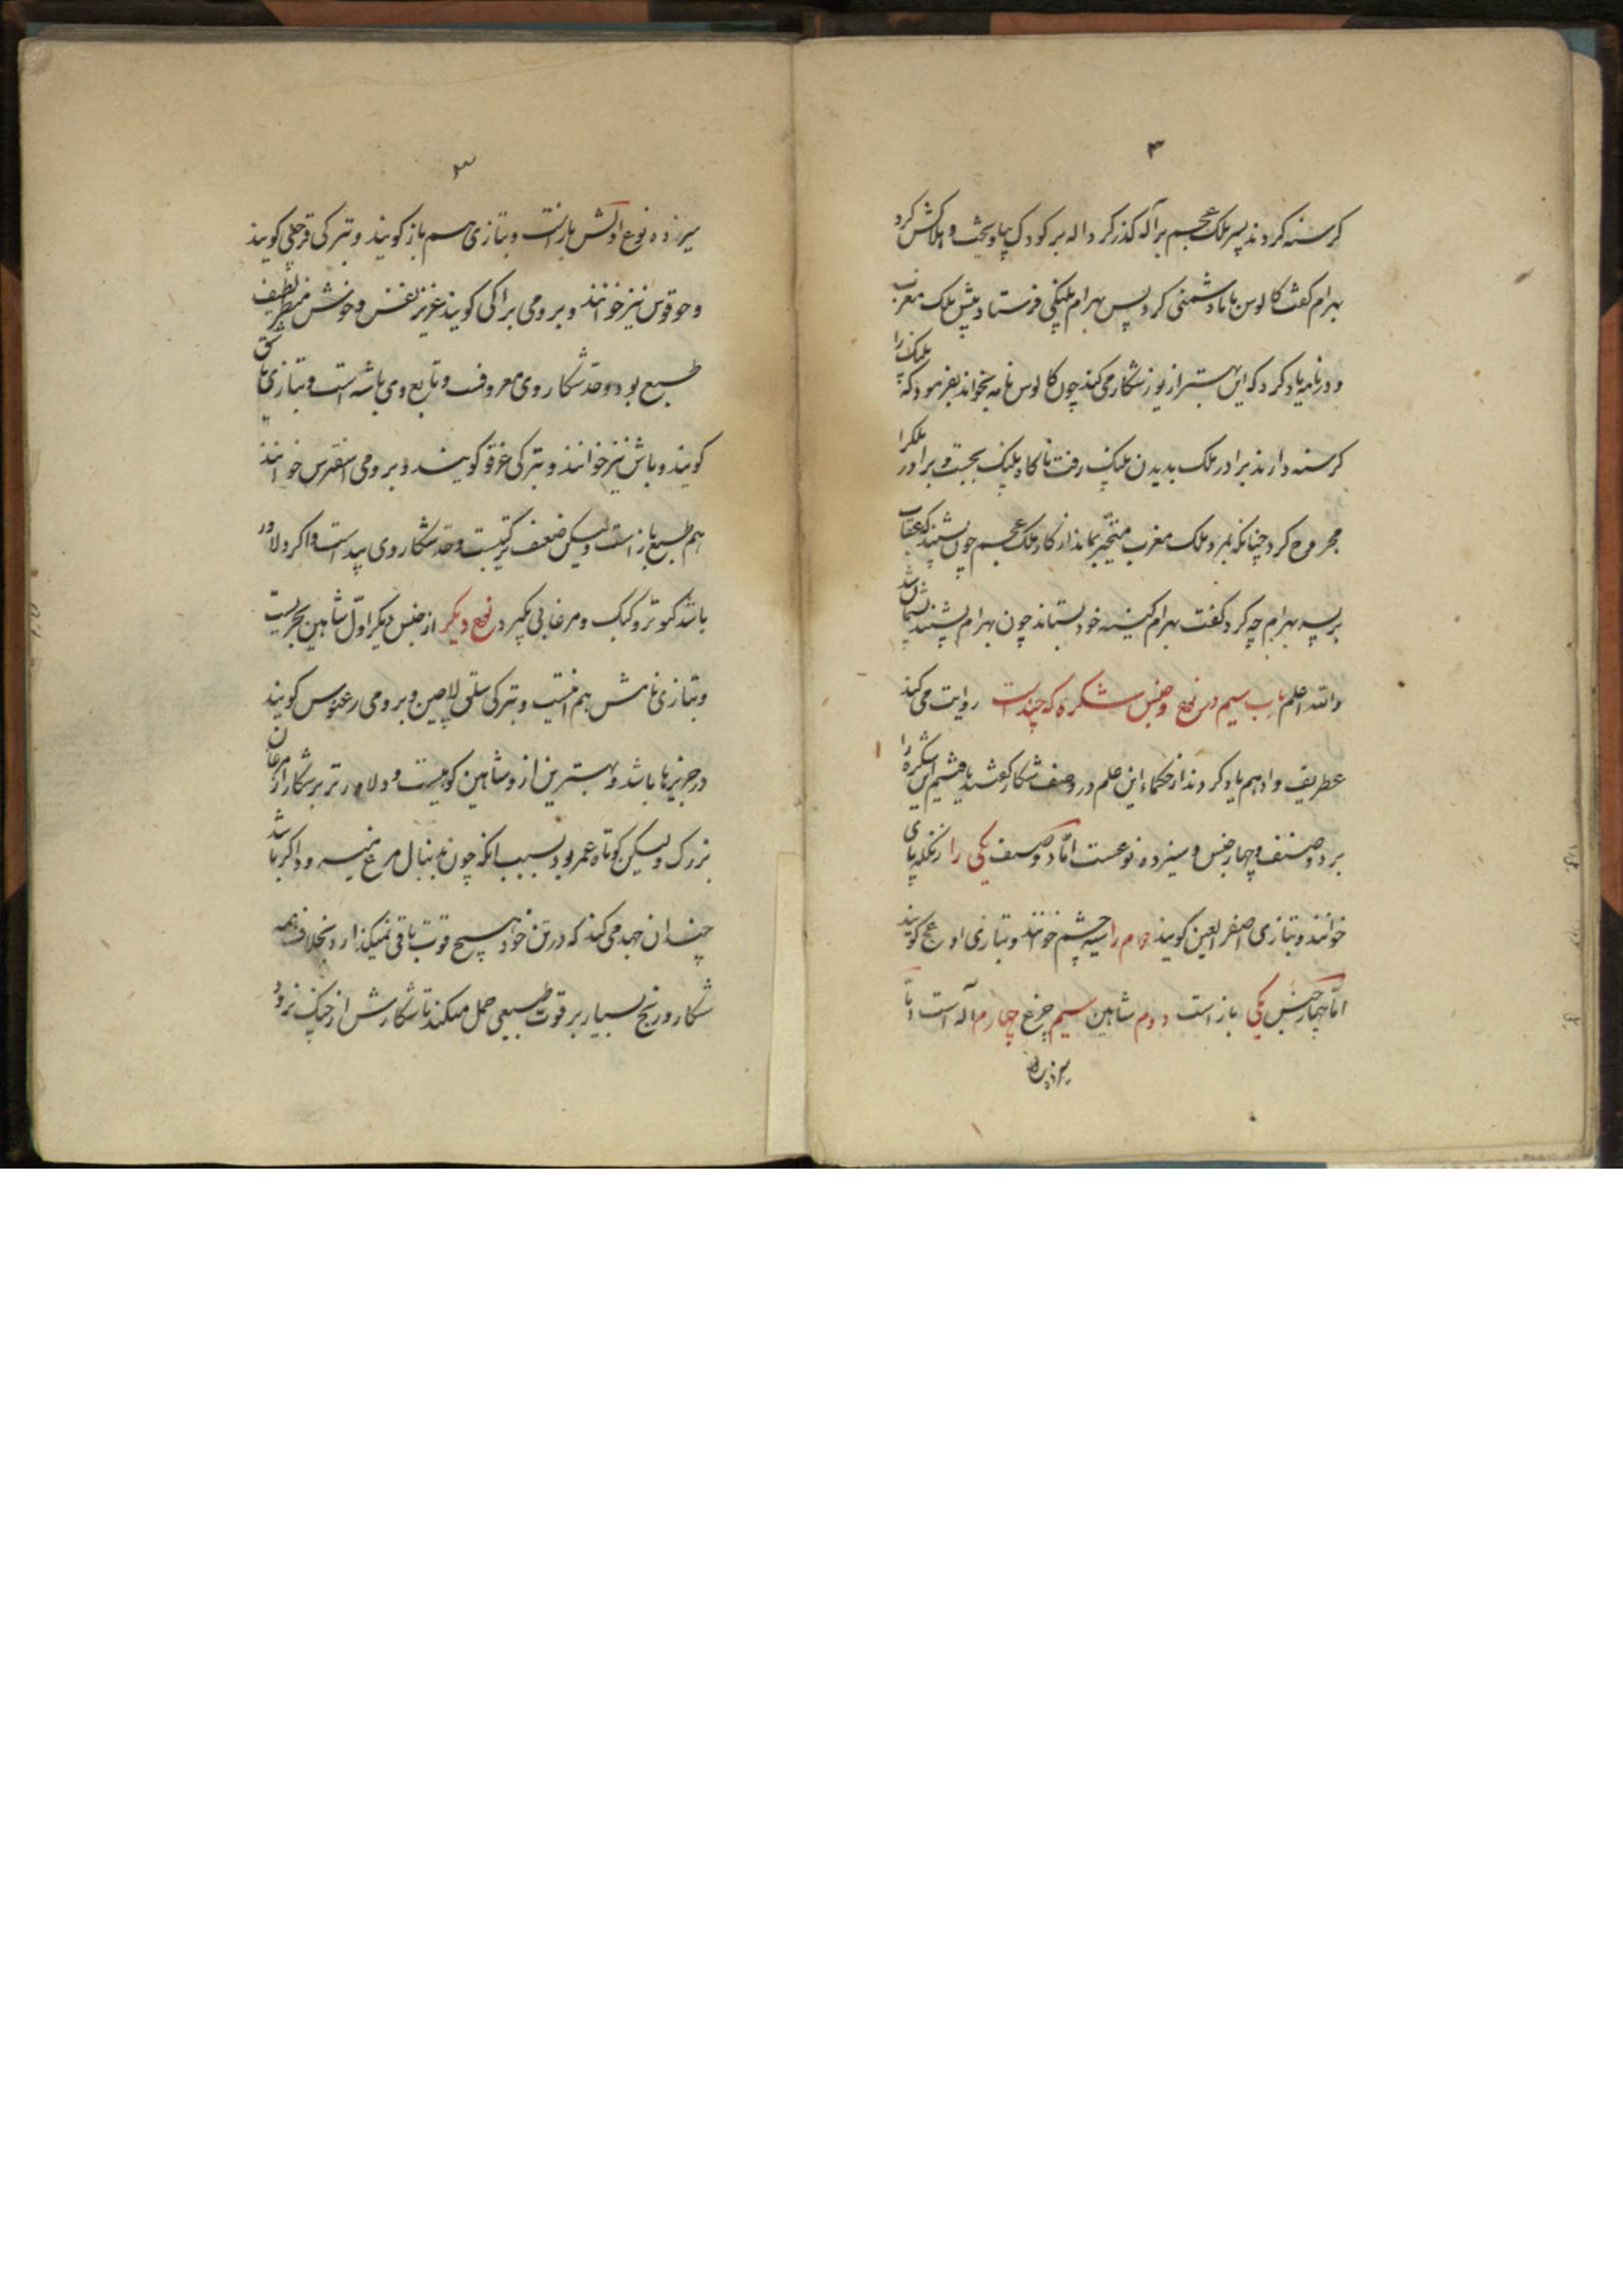 ۳
کرسنه کردند پسر ملک عجم بر آله کذر کرد اله بر کودک بیاویخت و هلاکش کرد
بهرام کفت کالوس با ما دشمنی کرد پس بهرام پلنکی فرستاد پیش ملک مغرب
و در نامه یاد کرد که این بهتر از یوز شکار می کند چون کالوس نامه بخواند بفرمود که پلنک را
کرسنه دارند برادر ملک بدیدن پلنک رفت ناکاه پلنک بجست و برادر ملکرا
مجروح کرد چنانکه بمرد ملک مغرب متحیر بماند از کار ملک عجم چون بشنید که عقاب
بر پسر بهرام چه کرد کفت بهرام کینه خود بستاند چون بهرام بشنید پشیمان شد
والله اعلم باب سیم در نوع و جنس شکره که چند است روایت می کند
غطریف و ادهم یاد کردند از حکماء این علم در وصف شکار کفتند یافتیم این شکره را
بر دو صنف و چهار جنس و سیزده نوعست اما دو صنف یکی را زنکله پای
خوانند و بتازی اصفر العین کویند دوم را سیه چشم خوانند و بتازی ادعج کویند
اما چهار جنس یکی باز است دوم شاهین سیم چرغ چهارم آله است اما
سیزده
۳
سیزده نوع اولش باز است و بتازی هم باز کویند و بترکی قرجغی کویند
و نیز خوانند و برومی براکی کویند عزیز نفس و خوش منظر لطیف
طبع بود و حد شکار وی معروف و تابع وی باشه است و بتازی باشق
کویند و باش نیز خوانند و بترکی غرقو کویند و برومی خوانند
هم طبع باز است ولیکن ضعف ترکیبست و حد شکار وی پیداست و اکر دلاور
باشد کبوتر و کبک و مرغابی بکیرد نوع دیکر از جنس دیکر اول شاهین بحریست
و بتازی نامش هم اینست و بترکی لاچین و برومی کویند
در جزیرها باشد و بهترین از و شاهین کوهیست و دلاورتر بر شکار از مرغان
بزرک ولیکن کوتاه عمر بود بسبب انکه چون بدنبال مرغ میرود اکر باشد
چندان جهد می کند که در تن خود هیچ قوت باقی نمیکذارد بخلاف همه
شکار و رنج بسیار بر قوت طبیعی حمل میکند تا شکارش از چنک نرود